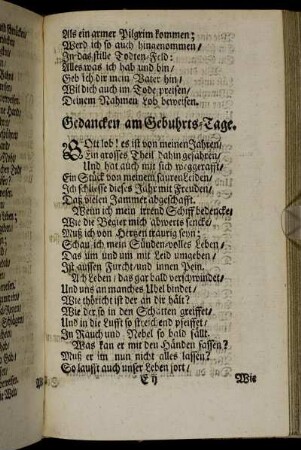 Als ein armer Pilgrim kommen;
Werd ich so auch hingenommen/
In das stille Todten-Feld:
Alles was ich hab und bin/
Geb ich dir mein Vater hin/
Wil dich auch im Tode preisen/
Deinem Nahmen Lob beweisen.
Gedancken am Gebuhrts-Tage.
GOtt lob! es ist von meinen Jahren/
Ein grosses Theil dahin gefahren/
Und hat auch mit sich weggerafft/
Ein Stück von meinem sauren Leiden/
Ich schliesse dieses Jahr mit Freuden/
Daß vielen Jammer abgeschafft.
Wenn ich mein irrend Schiff bedencke/
Wie die Begier mich abwerts sencke/
Muß ich von Hertzen traurig seyn;
Schau ich mein Sünden/volles Leben/
Das üm und üm mit Leid umgeben/
Ist aussen Furcht/und innen Pein.
Ach Leben/das gar bald verschwindet/
Und uns an manches Übel bindet/
Wie thöricht ist der an dir hält?
Wie der so in den Schatten greiffet/
Und in die Lufft so streichend pfeiffet/
In Rauch und Nebel so bald fällt.
Was kan er mit den Händen fassen?
Muß er im nun nicht alles lassen?
So laufft auch unser Leben fort/
E ij Wie